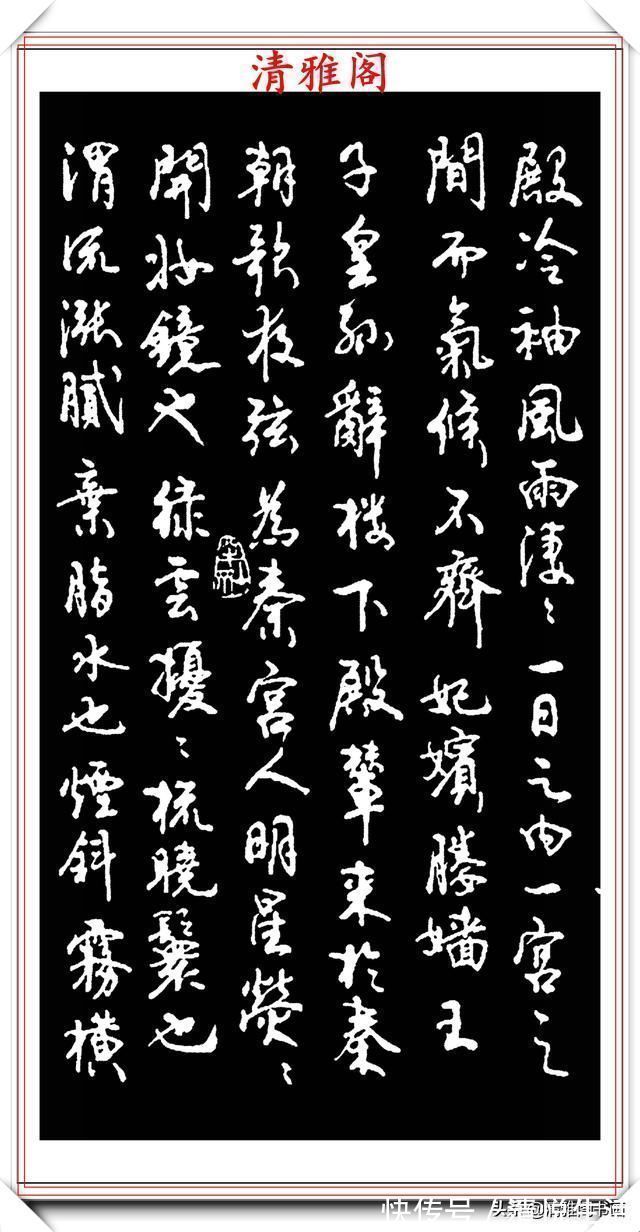 清雅阁
殿冷袖風雨淒々一日之内一宮之
間而氣候不齊妃嬪媵嬙王
子皇孫辭楼下殿輦来於秦
朝歌夜弦為秦宮人明星熒々
開妝鏡也绿雲擾々梳曉鬟也
渭流漲膩棄脂水也煙斜霧橫
快传号
头条@清雅阁书画